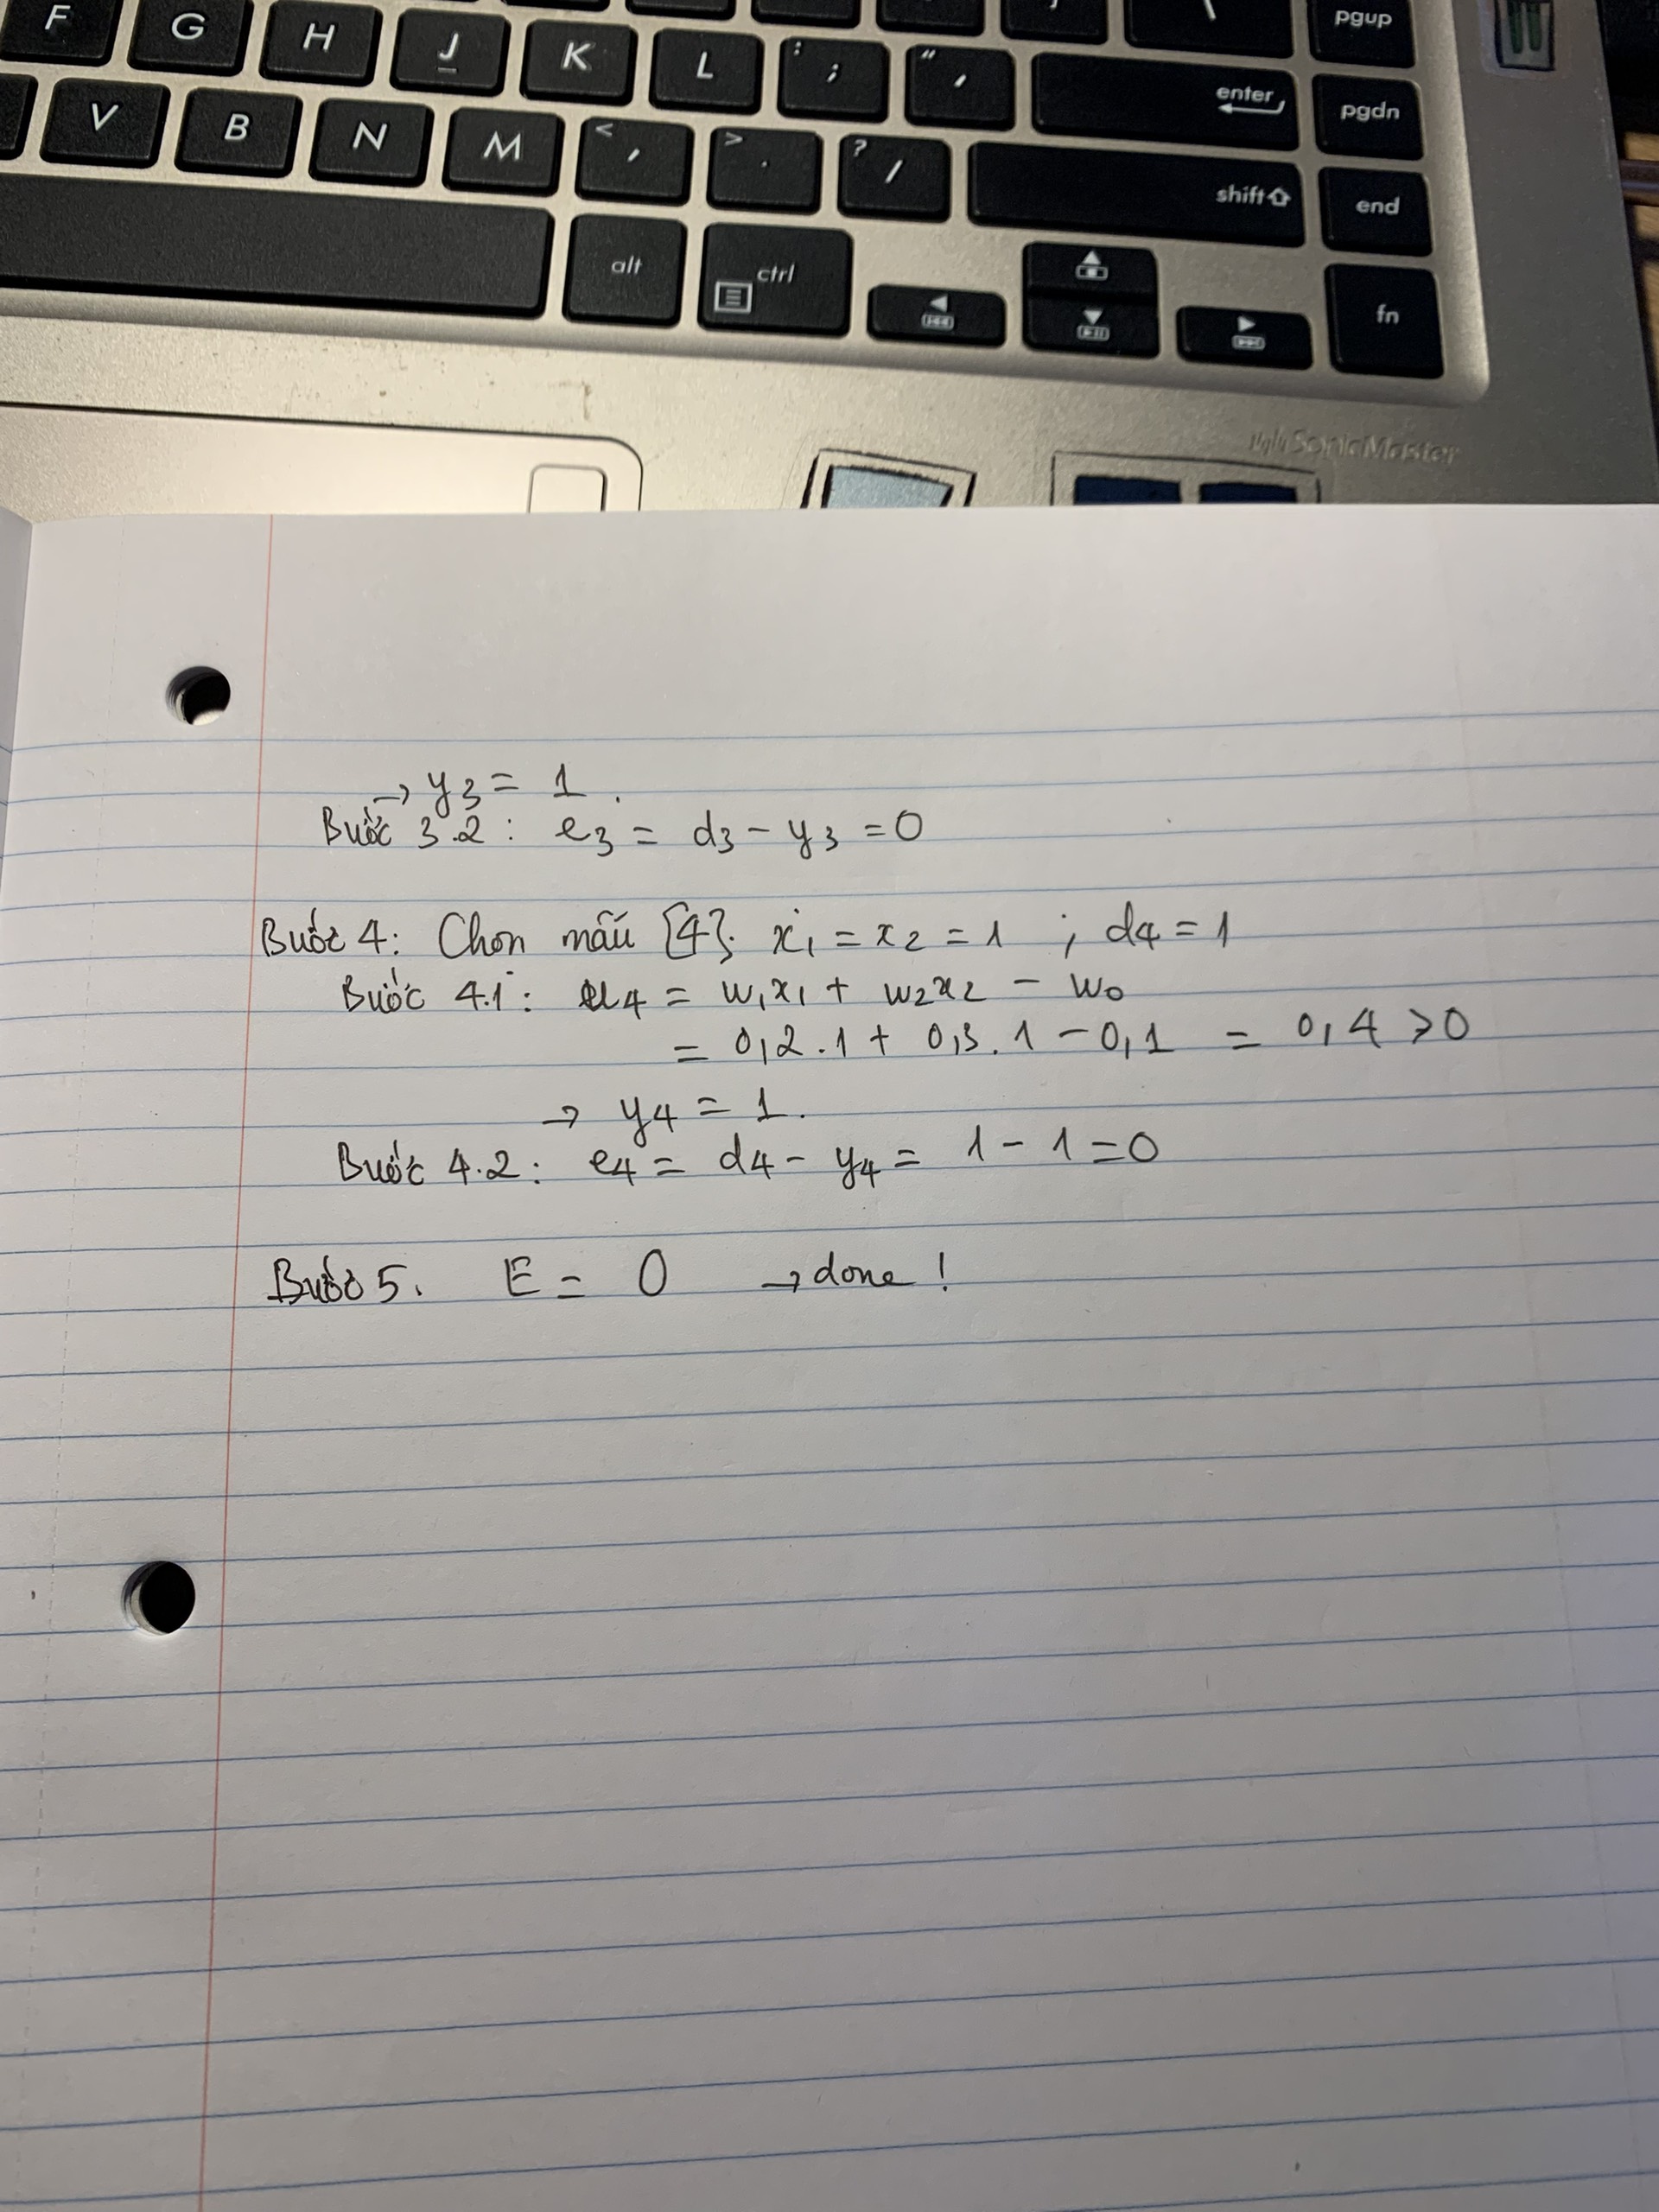 F G H J K L : ; " ' enter pgup
V B N M < , > . ? / shift pgdn
alt ctrl end
fn
SonicMaster
→ y3 = 1.
Bước 3.2 : e3 = d3 - y3 = 0
Bước 4: Chọn mẫu [4]. x1 = x2 = 1 ; d4 = 1
Bước 4.1 : u4 = w1x1 + w2x2 - w0
= 0,2.1 + 0,3.1 - 0,1 = 0,4 > 0
→ y4 = 1.
Bước 4.2 : e4 = d4 - y4 = 1 - 1 = 0
Bước 5. E = 0 → done !